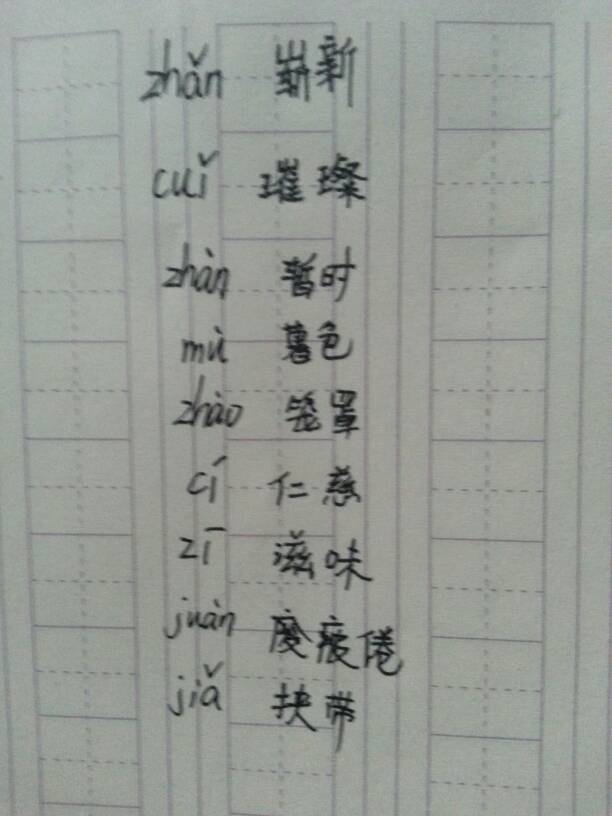 zhǎn 崭新
cuǐ 璀璨
zhàn 暂时
mù 暮色
zhào 笼罩
cí 仁慈
zī 滋味
juàn 疲倦
jiǎ 挟带